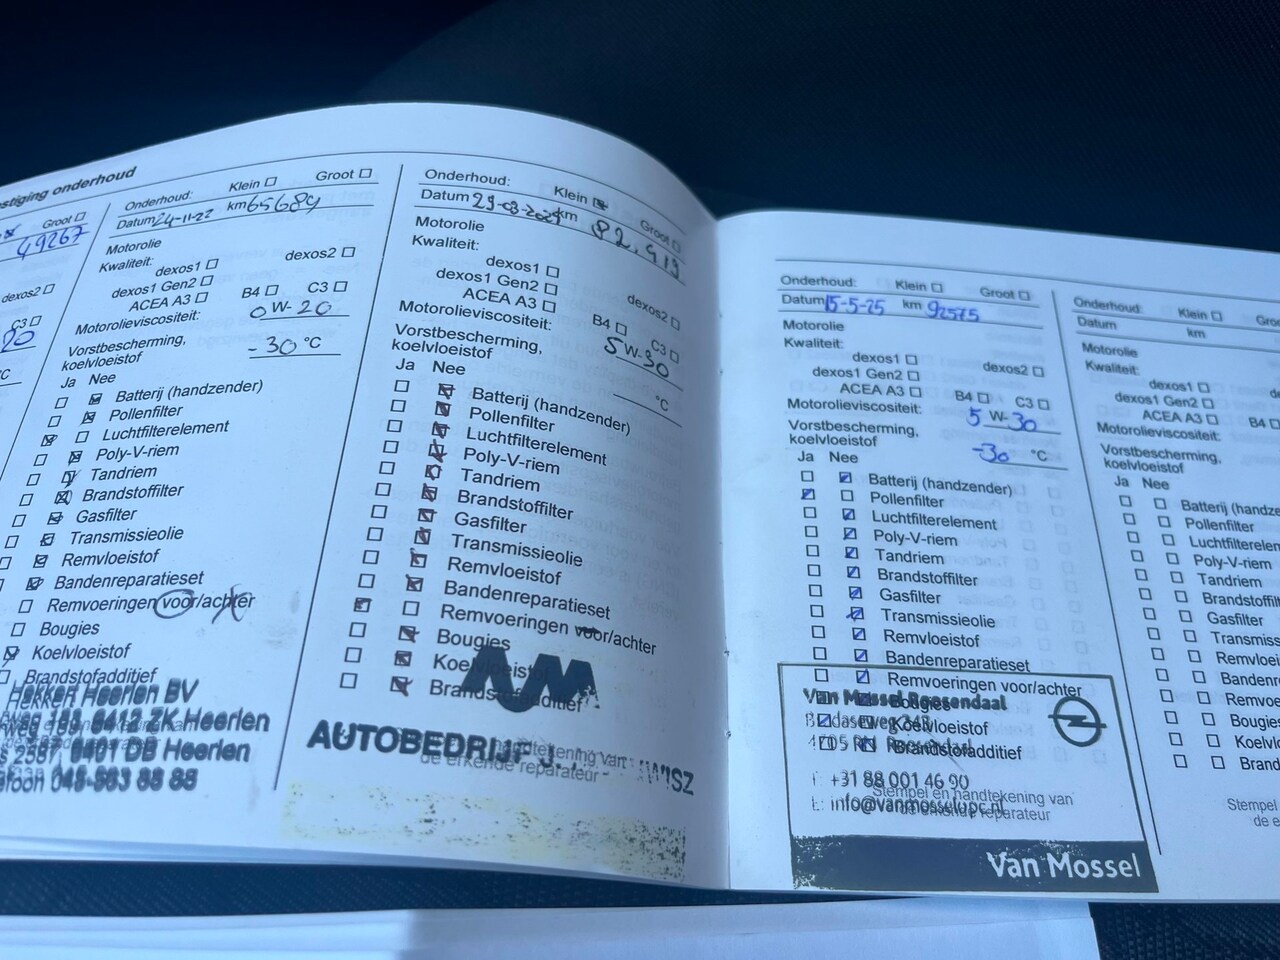 stiging onderhoud
Groot
49267
dexos2
C3
20
°C
Onderhoud: Klein Groot
Datum 24-11-22 km 65684
Motorolie
Kwaliteit:
dexos1 dexos2
dexos1 Gen2
ACEA A3 B4 C3
Motorolieviscositeit: 0 W-20
Vorstbescherming,
koelvloeistof -30 °C
Ja Nee
Batterij (handzender)
Pollenfilter
Luchtfilterelement
Poly-V-riem
Tandriem
Brandstoffilter
Gasfilter
Transmissieolie
Remvloeistof
Bandenreparatieset
Remvoeringen voor/achter
Bougies
Koelvloeistof
Brandstofadditief
Hekkert Heerlen BV
weg 183 6412 ZK Heerlen
6401 DB Heerlen
Onderhoud: Klein Groot
Datum 29-03-2024 km 82.419
Motorolie
Kwaliteit:
dexos1 dexos2
dexos1 Gen2
ACEA A3 B4 C3
Motorolieviscositeit: 5W-30
Vorstbescherming,
koelvloeistof °C
Ja Nee
Batterij (handzender)
Pollenfilter
Luchtfilterelement
Poly-V-riem
Tandriem
Brandstoffilter
Gasfilter
Transmissieolie
Remvloeistof
Bandenreparatieset
Remvoeringen voor/achter
Bougies
Koelvloeistof
Brandstofadditief
AUTOBEDRIJF
handtekening van
de erkende reparateur
Onderhoud: Klein Groot
Datum 15-5-25 km 92575
Motorolie
Kwaliteit:
dexos1 dexos2
dexos1 Gen2
ACEA A3 B4 C3
Motorolieviscositeit: 5 W-30
Vorstbescherming,
koelvloeistof -30 °C
Ja Nee
Batterij (handzender)
Pollenfilter
Luchtfilterelement
Poly-V-riem
Tandriem
Brandstoffilter
Gasfilter
Transmissieolie
Remvloeistof
Bandenreparatieset
Remvoeringen voor/achter
Bougies
Koelvloeistof
Brandstofadditief
Van Mossel Roosendaal
+31 88 001 46 90
Stempel en handtekening van
info@vanmosselupc.nl
de erkende reparateur
Van Mossel
Onderhoud: Klein
Datum km
Motorolie
Kwaliteit:
dexos1
dexos1 Gen2
ACEA A3 B4
Motorolieviscositeit:
Vorstbescherming,
koelvloeistof
Ja Nee
Batterij (handze
Pollenfilter
Luchtfilterelem
Poly-V-riem
Tandriem
Brandstoffilt
Gasfilter
Transmiss
Remvloei
Banden
Remvoe
Bougies
Koelvl
Brand
Stempel
de e